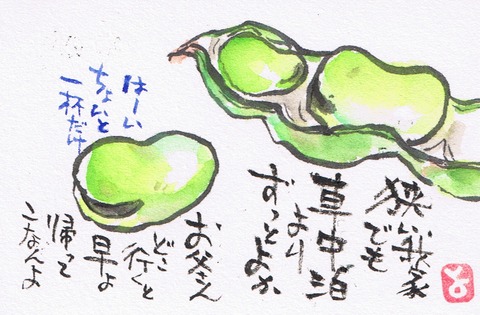 狭い我家
でも
車中泊
より
ずっとよか
お父さん
どこ行くと
早よ
帰って
こなんよ
はーい
ちょいと
一杯だけ